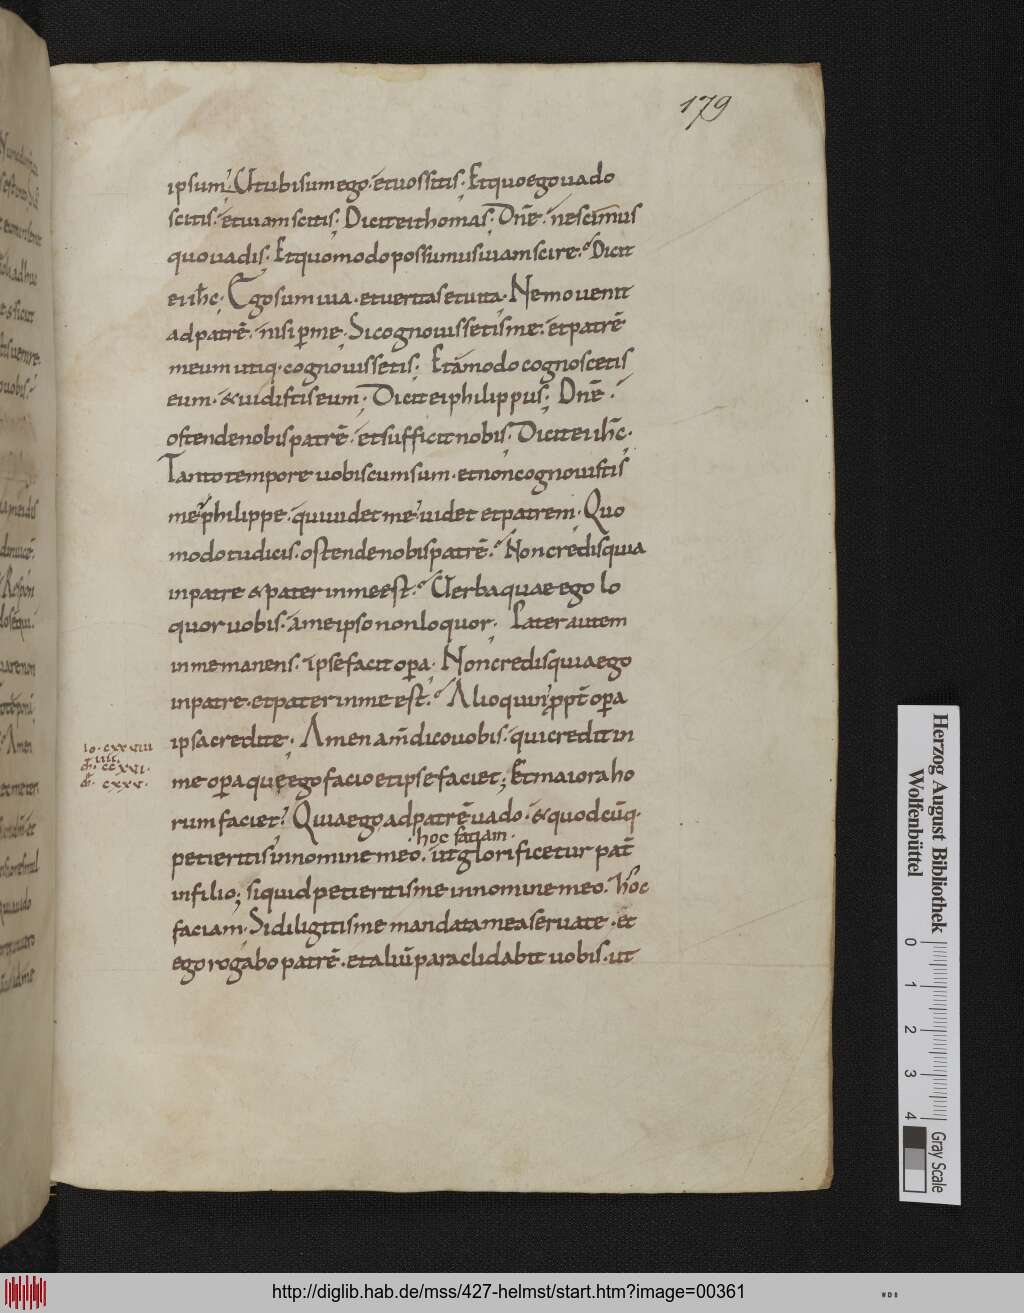 179
ipsum. Utubisumego. etuossitis. Etquoegouado
scitis. etuiamscitis. Diciteithomas. Dn̄e. nescimus
quouadis. Etquomodopossumusuiamscire. Dicit
eiih̄c. Egosumuia. etueritasetuita. Nemouenit
adpatrē. nisip̱me. Sicognouissetisme. etpatrē
meumutiq. cognouissetis. Etāmodocognoscetis
eum. &uidistiseum. Diciteiphilippus. Dn̄e.
ostendenobispatrē. etsufficitnobis. Diciteiih̄c.
Tantotemporeuobiscumsum. etnoncognouistis
me philippe. quiuidetme uidet etpatrem. Quo
modotudicis. ostendenobispatrē. Noncredisquia
inpatre &paterinmeest. Uerbaquaeego lo
quoruobis. ameipsononloquor. Paterautem
inmemanens. ipsefacitop̱a. Noncredisquiaego
inpatre. etpaterinmeest. Alioquin p̱pt̄op̱a
ipsacredite. Amenam̄dicouobis. quicreditin
io. cxxviii
iiii.
cxxvi.
cxxv.
meop̱aquęegofacioetipsefaciet; Etmaioraho
rumfaciet. Quiaegoadpatrēuado. &quodcūq.
hoc fatiam.
petieritisinnominemeo. utglorificeturpat̄
infilio; siquidpetieritismeinnominemeo. hoc
faciam. Sidiligitismemandatameaseruate. et
egorogabopatrē. etaliūparaclidabituobis. ut
Herzog August Bibliothek
Wolfenbüttel
0 1 2 3 4
Gray Scale
http://diglib.hab.de/mss/427-helmst/start.htm?image=00361